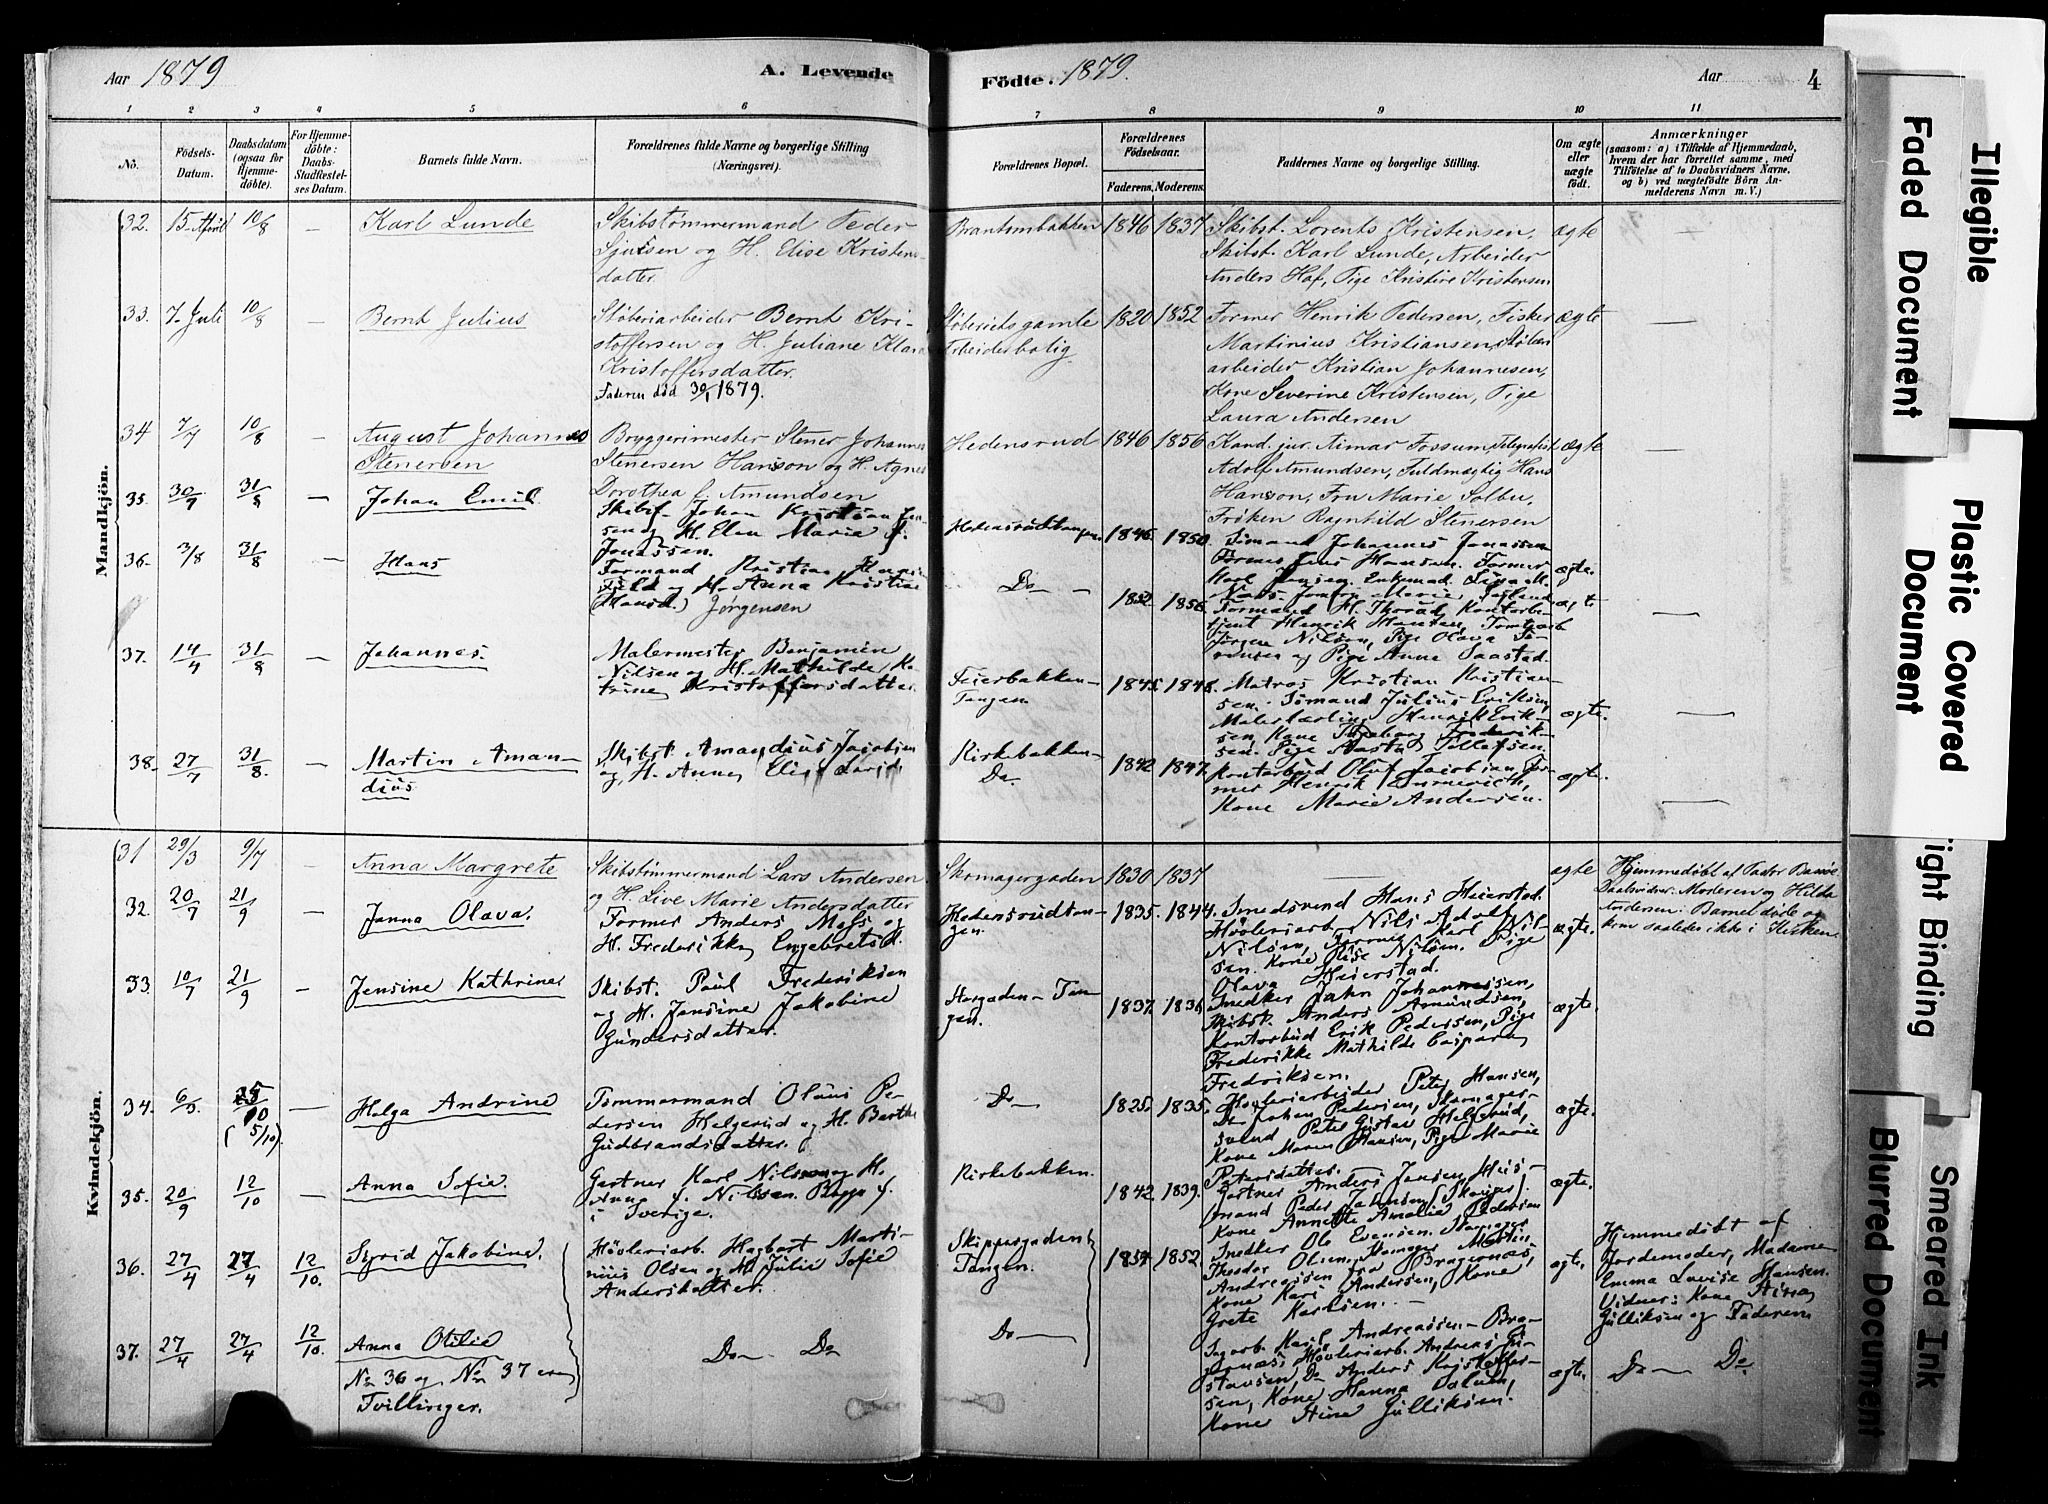 Aar 1879
A. Levende
Födte. 1879.
Aar
4
1 2 3 4 5 6 7 8 9 10 11
No.
Födsels-
Datum.
Daabsdatum
(ogsaa for
Hjemme-
döbte).
For Hjemme-
döbte:
Daabs-
Stadfæstel-
ses Datum.
Barnets fulde Navn.
Forældrenes fulde Navne og borgerlige Stilling
(Næringsvei).
Forældrenes Bopæl.
Forældrenes
Födselsaar.
Faderens. Moderens.
Faddernes Navne og borgerlige Stilling.
Om ægte
eller
uægte
født.
Anmærkninger
(saasom: a) i Tilfælde af Hjemmedaab,
hvem der har forrettet samme, med
Tilföielse af to Daabsvidners Navne,
og b) ved uægtefödte Börn An-
melderens Navn m. V.)
Mandkjön.
32. 15 April 10/8 — Karl Lunde
Skibstømmermand Peder
og H. Elise Kristens-
datter
Brantenbakken 1846 1837
Skibst. Lorents Kristensen,
Skibst. Karl Lunde, Arbeider
Anders Haf, Pige Kristine Kristensen
ægte —
33. 7 Juli 10/8 — Bernt Julius
Støberiarbeider Bernt Kri-
stoffersen og H. Juliane Klara
Kristoffersdatter.
Faderen død 30/1 1879.
Støberiets gamle
Arbeiderbolig
1820 1852
Former Henrik Pedersen, Fisker
Martinius Kristiansen, Støberi
arbeider Kristian Johannesen,
Kone Severine Kristensen, Pige
Laura Andersen
ægte —
34 7/7 10/8 — August Johannes
Stenersen
Bryggerimester Stener Johannes
Stenersen Hanson og H. Agnes
Dorothea f. Amundsen
Hedensrud 1846 1856
Kand. jur. Aimar Fossum, Telegrafist
Adolf Amundsen, Fuldmægtig Hans
Hanson, Fru Marie Solbu,
Frøken Ragnhild Stenersen
ægte —
35. 30/7 31/8 — Johan Emil
Skibst. Johan Kristian Jen-
sen og H. Elen Marie f.
Jonassen.
Hedensrudtangen. 1845 1850
Sømand Johannes Jonassen
Former Jens Hansen. Former
Karl Jensen. Enkemad.
ægte.
36. 3/8 31/8 — Hans
Formand Kristian
og H. Anna Kristine
(Hansd.) Jørgensen
Do — 1852 1856
Formand H. Kontorbe-
tjent Henrik Hansen,
Jørgen Nilsen, Pige Olava
og Pige Anne Saastad.
ægte —
37. 14/4 31/8 — Johannes.
Malermester Benjamin
Nilsen og H. Mathilde Ka-
trine Kristoffersdatter.
Feierbakken
Tangen
1845. 1845.
Matros Kristian Kristian-
sen. Sømand Julius Eriksen,
Malerlærling Henrik Erik-
sen, Kone Ingeborg Frederik-
sen. Pige Aasta Tollefsen.
ægte. —
38. 27/7 31/8. — Martin Aman-
dius
Skibst. Amandius Jacobsen
og H. Anne Elise
Kirkebakken
Do.
1842 1847.
Kontorbud Oluf Jacobsen, For-
mer Henrik Emmerich,
Kone Marie Andersen.
ægte. —
Kvindekjön.
31 29/3 9/7 — Anna Margrete
Skibstømmermand Lars Andersen
og H. Live Marie Andersdatter
Skomagergaden 1830 1837
—
ægte
Hjemmedøbt af Pastor
Daabsvidner: Moderen og Hilda
Andersen. Barnet døde og
kom saaledes ikke i Kirken
32. 20/7 21/9 — Janna Olava.
Former Anders Moss og
H. Frederikke Engebretsd.
Hedensrudtan-
gen.
1835. 1844.
Smedsvend Hans Heierstad.
Høvleriarb. Nils Adolf
Nilsen, Karl Nil-
sen. Kone Elise Nilsen. Pige
Olava Heierstad.
ægte.
33. 10/7 21/9 — Jensine Kathrine
Skibst. Paul Frederiksen
og H. Jensine Jakobine
Gundersdatter.
Storgaden Tan-
gen.
1837. 1836
Snedker Jahn Johannessen,
Skibst. Anders Amundsen,
Kontorbud Erik Pedersen, Pige
Frederikke Mathilde Caspara
Fredriksen.
ægte.
34. 25/10 (5/10). — Helga Andrine
Tømmermand Olaus Pe-
dersen Helgerud og H. Berthe
Gudbrandsdatter.
Do — 1825. 1835.
Høvleriarbeider Peter Hansen,
Do Johan Pedersen, Skomager-
svend Peter Gustav Helgerud,
Kone Maren Hansen, Pige Marie
Petersdatter.
ægte.
35. 20/9 12/10 — Anna Sofie.
Gartner Karl Nilsson og H.
Anna f. Nilssen. Begge f.
i Sverige.
Kirkebakken. 1842. 1839.
Gartner Anders Jensen, Hus-
mand Peder Jahnsen (Skoger)
Kone Annette Amalie Pedersen
ægte.
36. 27/4 27/4 12/10. Sigrid Jakobine.
Høvleriarb. Hagbart Marti-
nius Olsen og H. Julie Sofie
Andersdatter.
Skippergaden
Tangen.
1854 1852.
Snedker Ole Evensen. Skomager
Theodor Olsen, Skomager Morten
Andreassen fra Bragernæs,
Kone Kari Andersen, Kone
Grete Karlsen. —
ægte.
Hjemmedøbt af
Jordemoder, Madame
Emma Lovise Hansen.
Vidner: Kone Stina
Gulliksen og Faderen
37. 27/4 27/4 12/10. Anna Otilie
No 36 og No 37 ere
Tvillinger.
Do — Do
Do —
Sagarb. Karl Andreassen — Bra-
gernæs, Høvleriarb. Andreas Gu-
stavsen, Do Anders Kristoffer-
sen, Kone Hanna
Kone Stine Gulliksen.
ægte.
Do — Do
Illegible
Faded Document
Plastic Covered
Document
Tight Binding
Smeared Ink
Blurred Document